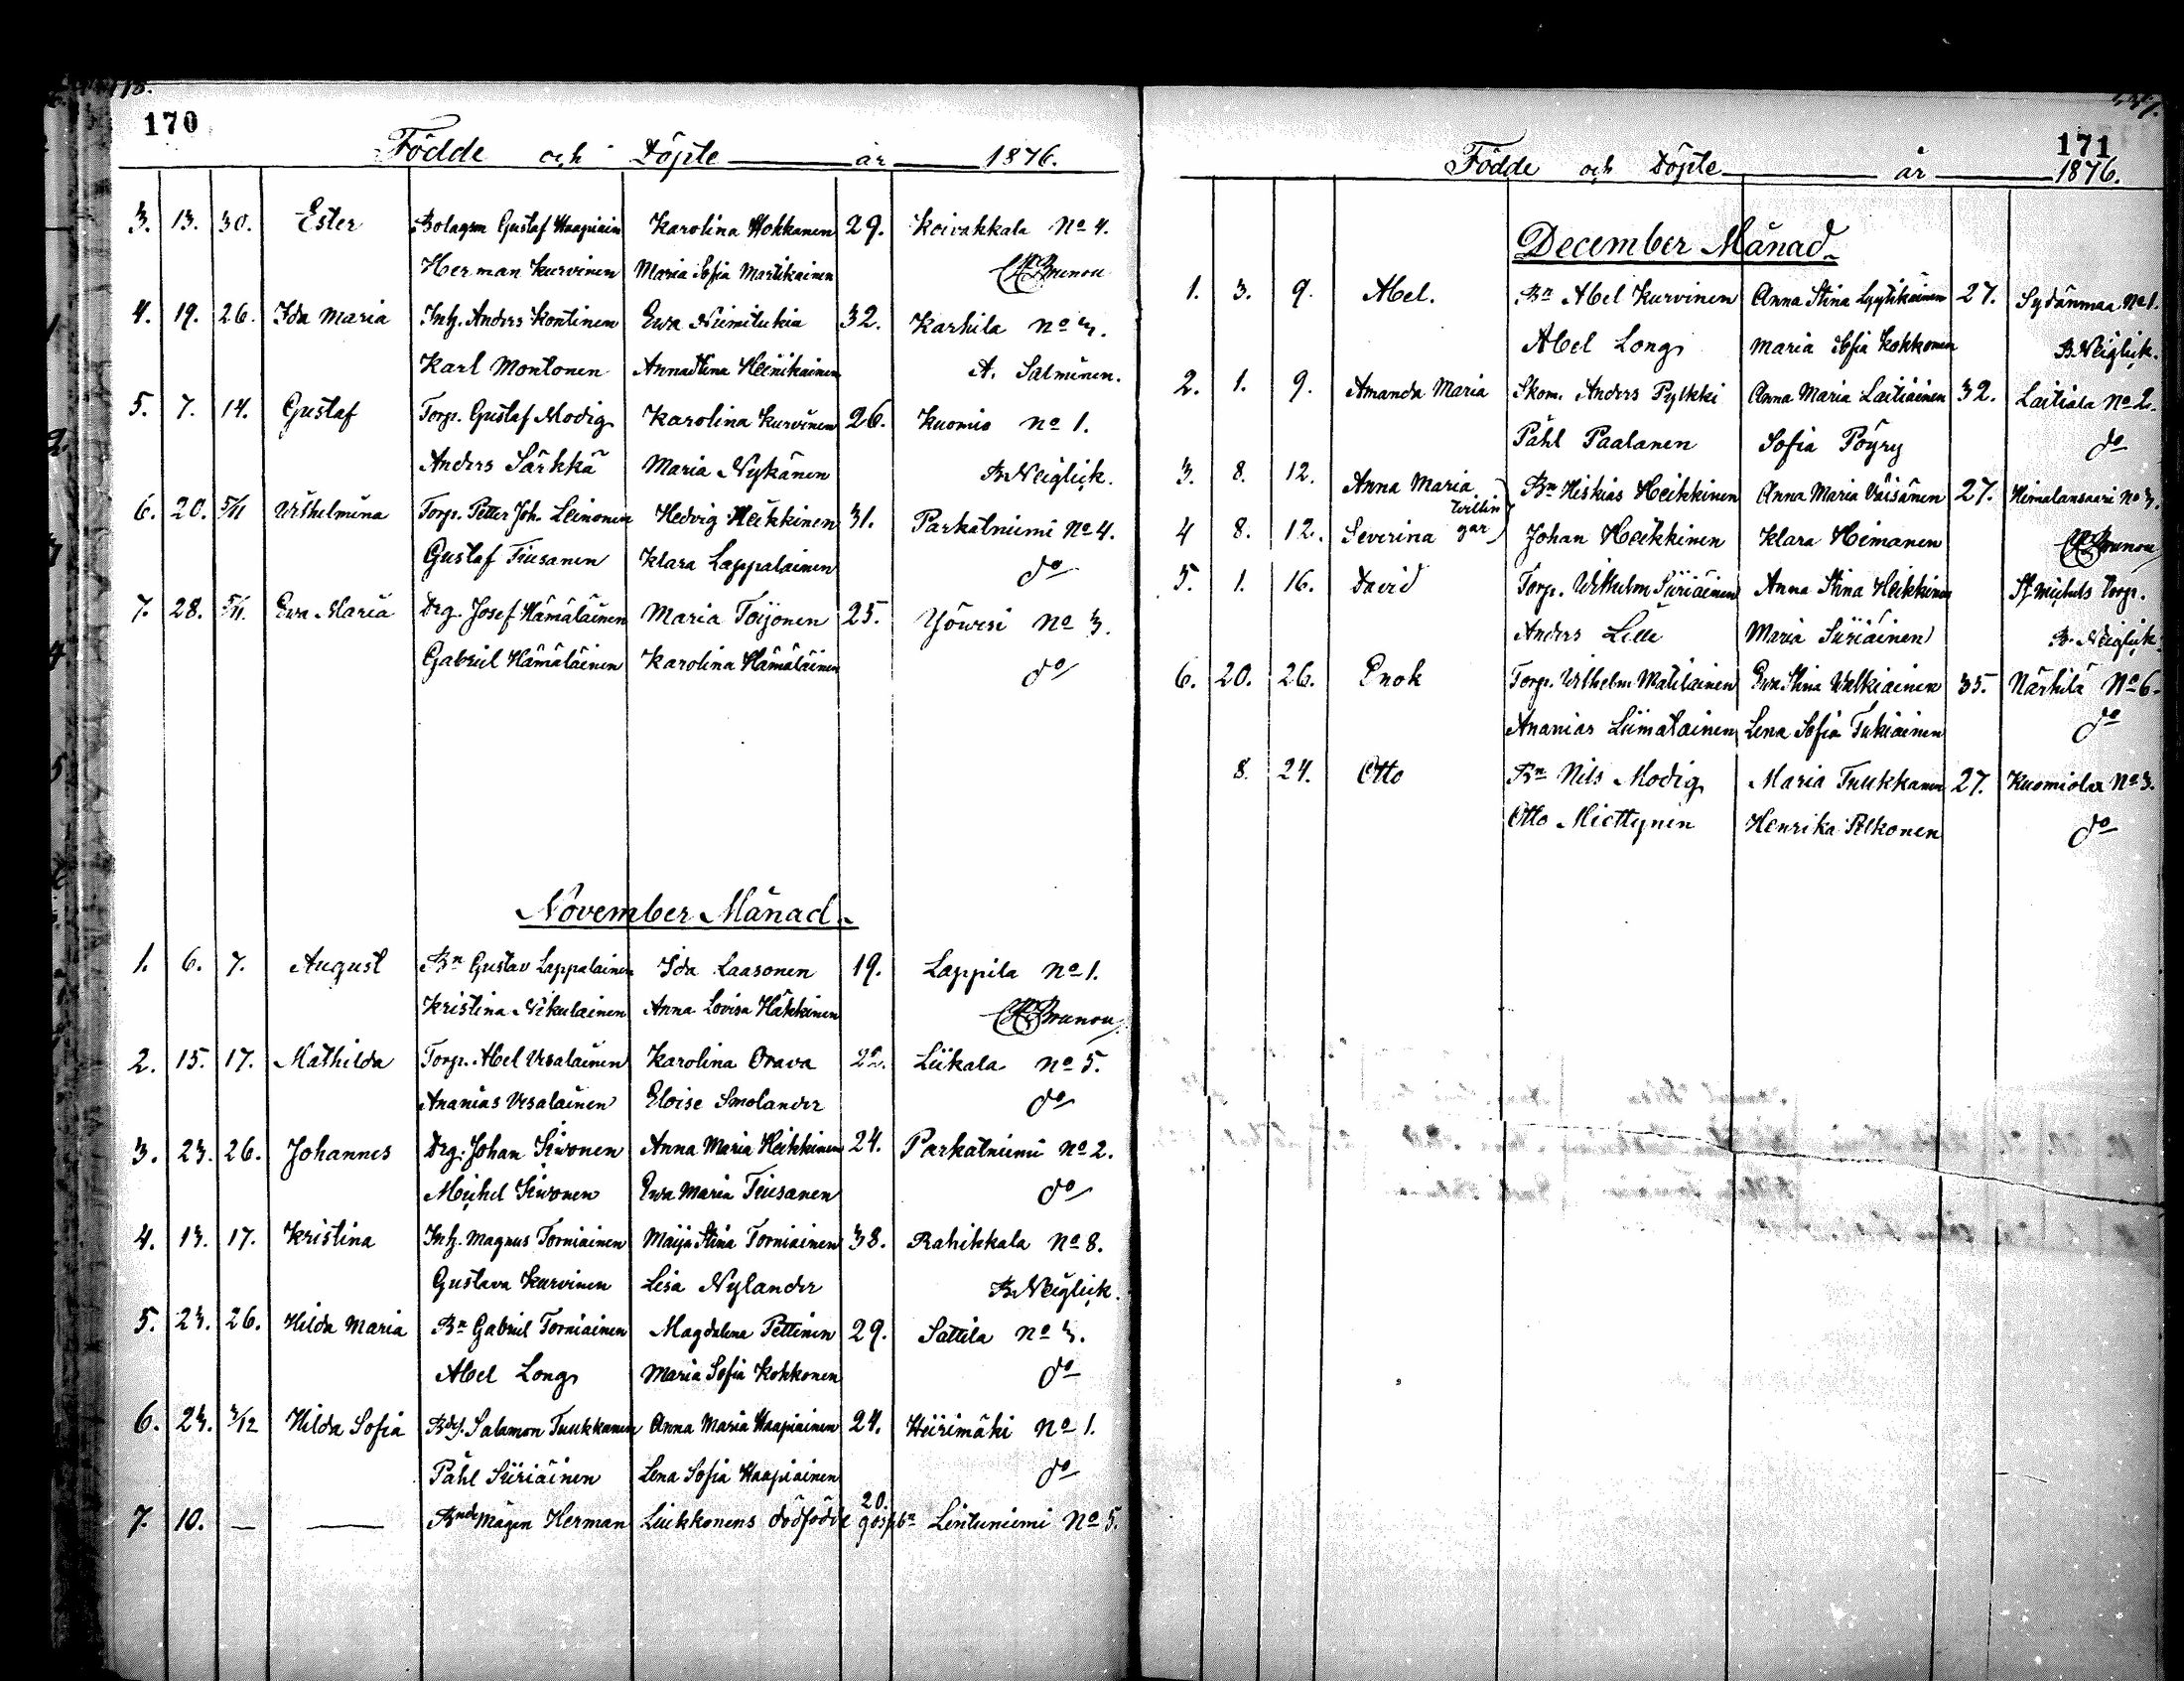 170
Födde och Döpte år 1876.
3. 13. 30. Ester Bolagsm Gustaf Haapiain Karolina Hokkanen 29. Koivakkala No 4.
Herman Kurvinen Maria Sofia Martikainen Brunou
4. 19. 26. Ida Maria Inh. Anders Kontinen Ewa Niimitukia 32. Karhila No 3.
Karl Montonen Anna Stina Heinikainen A. Salminen.
5. 7. 14. Gustaf Torp. Gustaf Modig Karolina Kurvinen 26. Kuomio No 1.
Anders Särkkä Maria Nykänen B. Neiglick.
6. 20. 5/11 Wilhelmina Torp. Petter Joh. Leinonen Hedvig Heikkinen 31. Parkatniemi No 4.
Gustaf Tiusanen Klara Lappalainen do
7. 28. 5/11. Ewa Maria Drg. Josef Hämäläinen Maria Toijonen 25. Yöwesi No 3.
Gabriel Hämäläinen Karolina Hämäläinen do
November Månad.
1. 6. 7. August Bn Gustav Lappalainen Ida Laasonen 19. Lappila No 1.
Kristina Nikulainen Anna Lovisa Häkkinen Brunou
2. 15. 17. Mathilda Torp. Abel Ursalainen Karolina Orava 22. Liikala No 5.
Ananias Ursalainen Eloise Smolander do
3. 23. 26. Johannes Drg. Johan Siwonen Anna Maria Heikkinen 24. Parkatniemi No 2.
Michel Siwonen Ewa Maria Tiusanen do
4. 13. 17. Kristina Inh. Magnus Torniainen Maija Stina Torniainen 38. Rahikkala No 8.
Gustava Kurvinen Lisa Nylander B. Neiglick.
5. 23. 26. Hilda Maria Bn Gabriel Torniainen Magdalena Pettinen 29. Sattila No 3.
Abel Long Maria Sofia Kokkonen do
6. 23. 3/12 Hilda Sofia Bds. Salamon Tuukkanen Anna Maria Haapiainen 24. Hiirimäki No 1.
Påhl Siiriäinen Lena Sofia Haapiainen do
7. 10. — — Bndemågen Herman Liukkonens dödfödde 20. gossbn Lintuniemi No 5.
171
Födde och Döpte år 1876.
December Månad
1. 3. 9. Abel. Bn Abel Kurvinen Anna Stina Lyytikäinen 27. Sydänmaa No 1.
Abel Long Maria Sofia Kokkonen B. Neiglick.
2. 1. 9. Amanda Maria Skom. Anders Pylkki Anna Maria Laitiainen 32. Laitiala No 2.
Påhl Paalanen Sofia Pöyry do
3. 8. 12. Anna Maria Bn Hiskias Heikkinen Anna Maria Väisänen 27. Heimalansaari No 3.
Tvillin
gar
4 8. 12. Severina Johan Heikkinen Klara Heimanen Brunou
5. 1. 16. David Torp. Wilhelm Siiriäinen Anna Stina Heikkinen St. Michels Torp.
Anders Lille Maria Siiriäinen B. Neiglick.
6. 20. 26. Enok Torp. Wilhelm Matilainen Ewa Stina Walkiainen 35. Närhilä No 6.
Ananias Liimatainen Lena Sofia Tukiainen do
8. 24. Otto Bn Nils Modig Maria Tuukkanen 27. Kuomiola No 3.
Otto Miettynen Henrika Pelkonen do